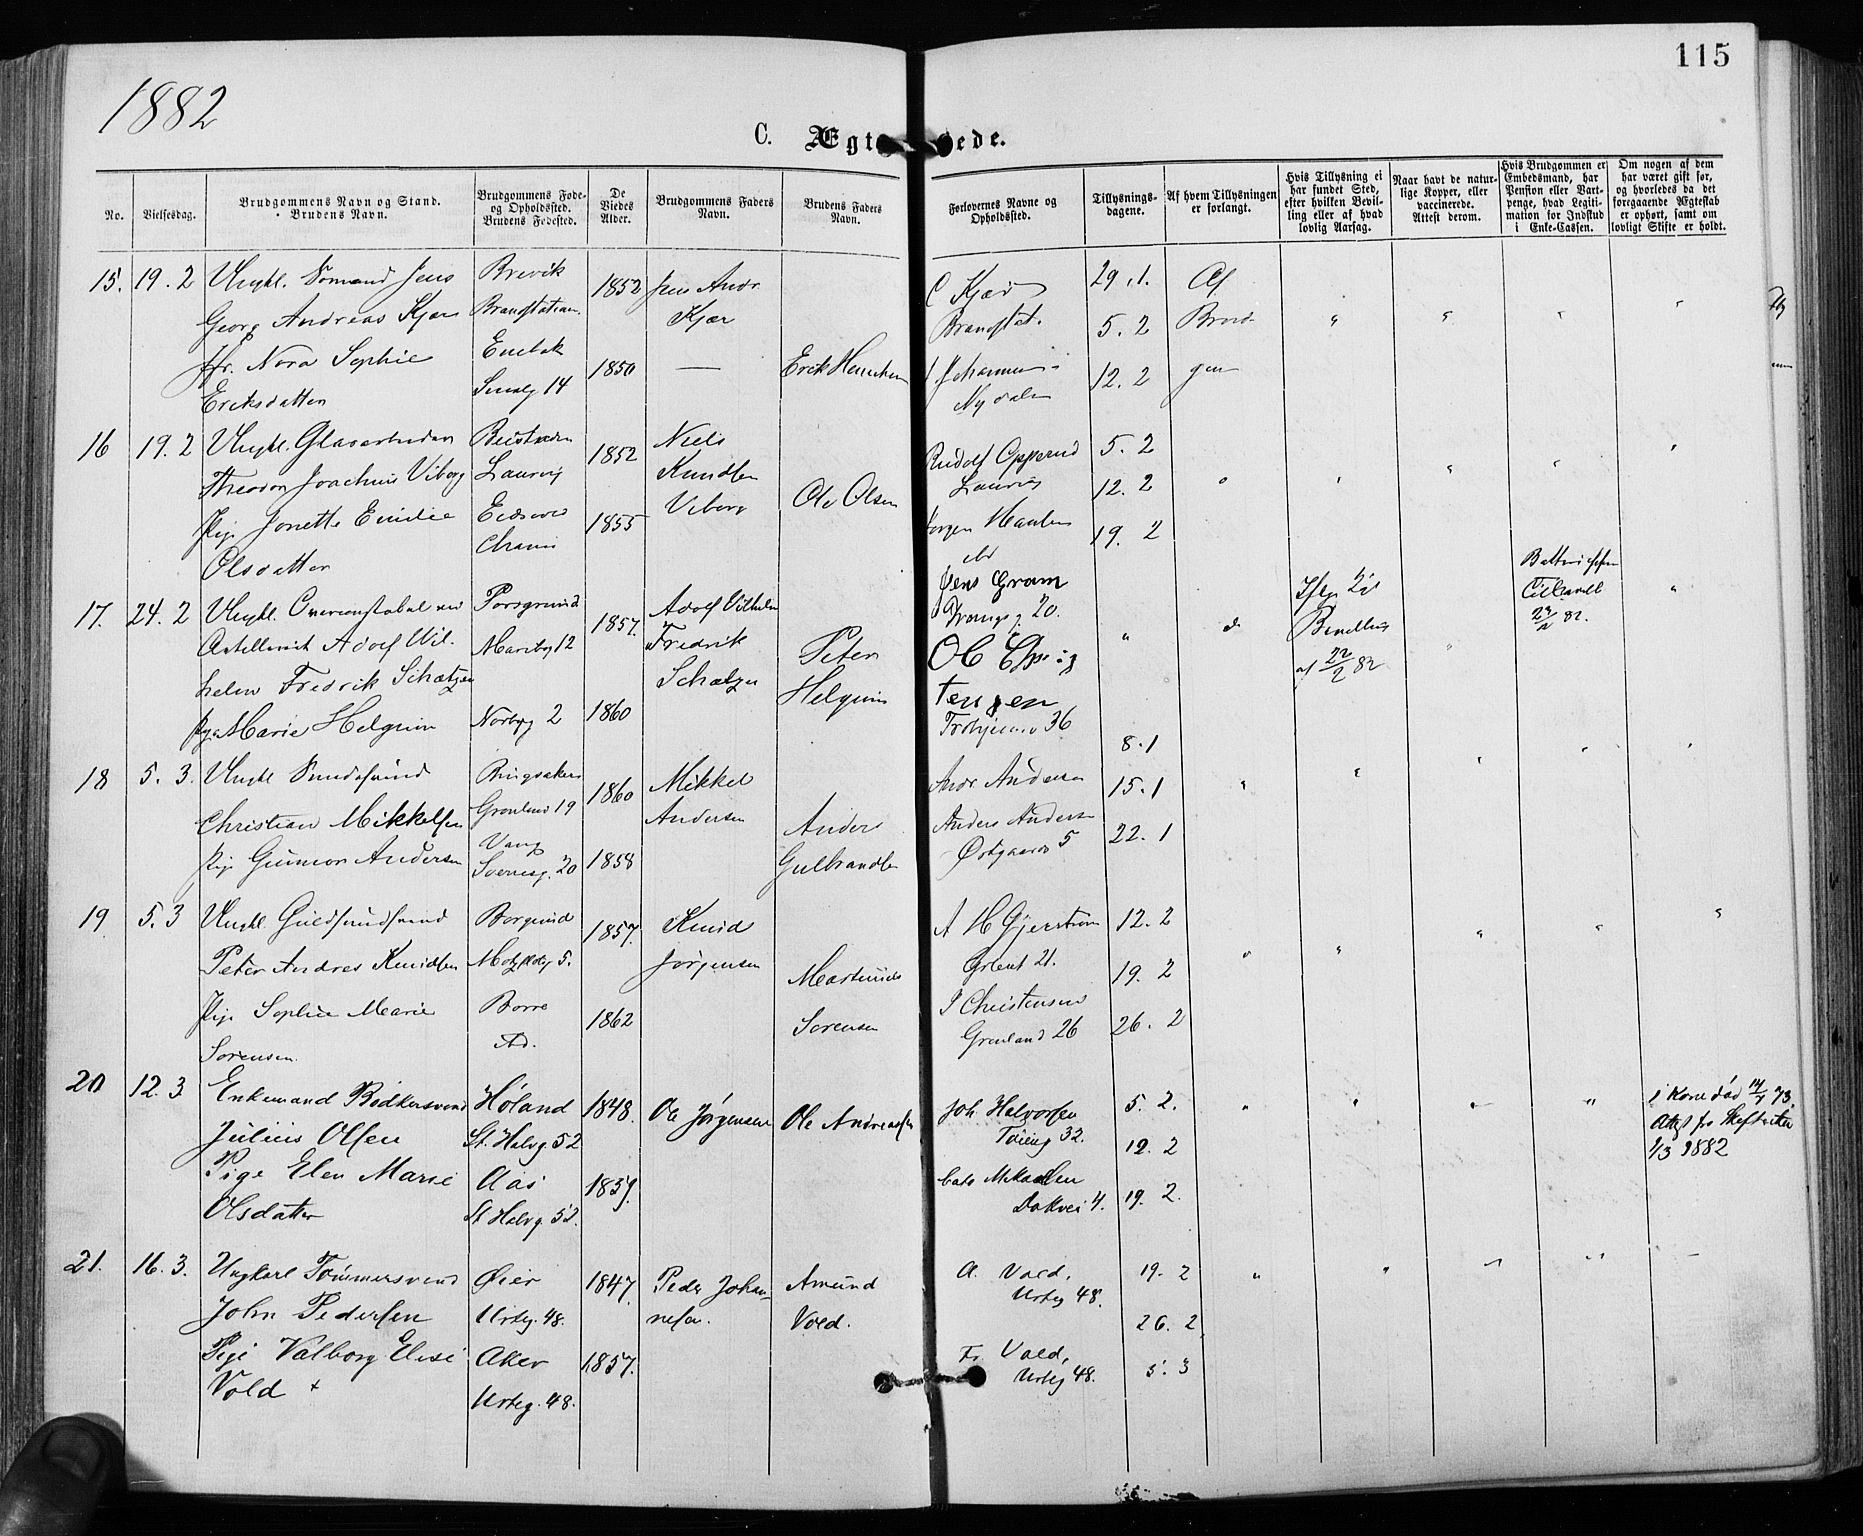 115
1882
C. Ægt ede.
No.
Vielsesdag.
Brudgommens Navn og Stand.
Brudens Navn.
Brudgommens Føde-
og Opholdssted.
Brudens Fødested.
De
Viedes
Alder.
Brudgommens Faders
Navn.
Brudens Faders
Navn.
Forlovernes Navne og
Opholdssted.
Tillysnings-
dagene.
Af hvem Tillysningen
er forlangt.
Hvis Tillysning ei
har fundet Sted,
efter hvilken Bevil-
ling eller af hvad
lovlig Aarsag.
Naar havt de natur-
lige Kopper, eller
vaccinerede.
Attest derom.
Hvis Brudgommen er
Embedsmand, har
Pension eller Vart-
penge, hvad Legiti-
mation for Indskud
i Enke-Cassen.
Om nogen af dem
har været gift før,
og hvorledes da det
foregaaende Ægteskab
er ophørt, samt om
lovligt Skifte er holdt.
15. 19. 2 Ungkl. Sømand Jens Brevik 1852 Jens Andr C Kjær 29. 1. Af
Georg Andreas Kjær Brandstation Kjær Brandstat. 5. 2 Brud-
Jfr. Nora Sophie Enebak 1850 — Erik 12. 2 gom
Eriksdatter 14 Nydalen
16 19. 2 Ungkl. Glasarbeider 1852 Niels Rudolf Opperud 5. 2
Theodor Joachim Viborg Laurvig Knudsen Laurvig 12. 2
Pige Jonette Emilie Eidsvold 1855 Viborg Ole Olsen Jørgen 19. 2
Olsdatter Chania do
17. 24. 2 Ungkl. Overconstabel ved Porsgrund 1857. Adolf Vilhelm Jens Gram 24/2 82.
Artilleriet Adolf Wil- Marieby 12 Fredrik Peter 20. Bevilling
helm Fredrik Schætzer Schætzer Helgum af 22/2 82
Pige Marie Helgum Norbyg 2 1860 36
18 5. 3. Ungkl Christian Mikkelsen Ringsaker 1860 Mikkel Andr. Andersen 8. 1
Grønland 19 Andersen Anders Anders Andersen 15. 1
Pige Gunnor Andersen Vang 1858 Gulbrandsen Østgaard 5 22. 1
20
19 5. 3 Ungkl Guldsmedsvend Borgund 1857. Knud A H Gjerstrøm 12. 2
Peter Andres Knudsen 5. Jørgensen Martinus Grønl 21. 19. 2
Pige Sophie Marie Borre 1862 Sørensen J Christensen 26. 2
Sørensen Ad. Grønland 26
20 12. 3. Enkemand Bødkersvend Høland 1848. Ole Jørgensen Ole Andreassen Joh Halvorsen 5. 2. 1 Kone død 14/7 73.
Julius Olsen St. Halvg. 52 Tøieng 32. 12. 2 Attest fr Skifteretten
Pige Elen Marie Aas 1859. Mikaelsen 19. 2. 1/3 1882
Olsdatter St. Halvg. 52. Dokvei 4.
21. 16. 3. Ungkarl Tømmersvend Øier 1847. Peder Johan- Amund A. Vold, 19. 2
John Pedersen Urteg. 48. nesen. Vold. Urteg 48. 26. 2
Pige Valborg Elise Aker 1857. Fr. Vold, 5. 3
Vold + Urteg. 48. Urteg 48.